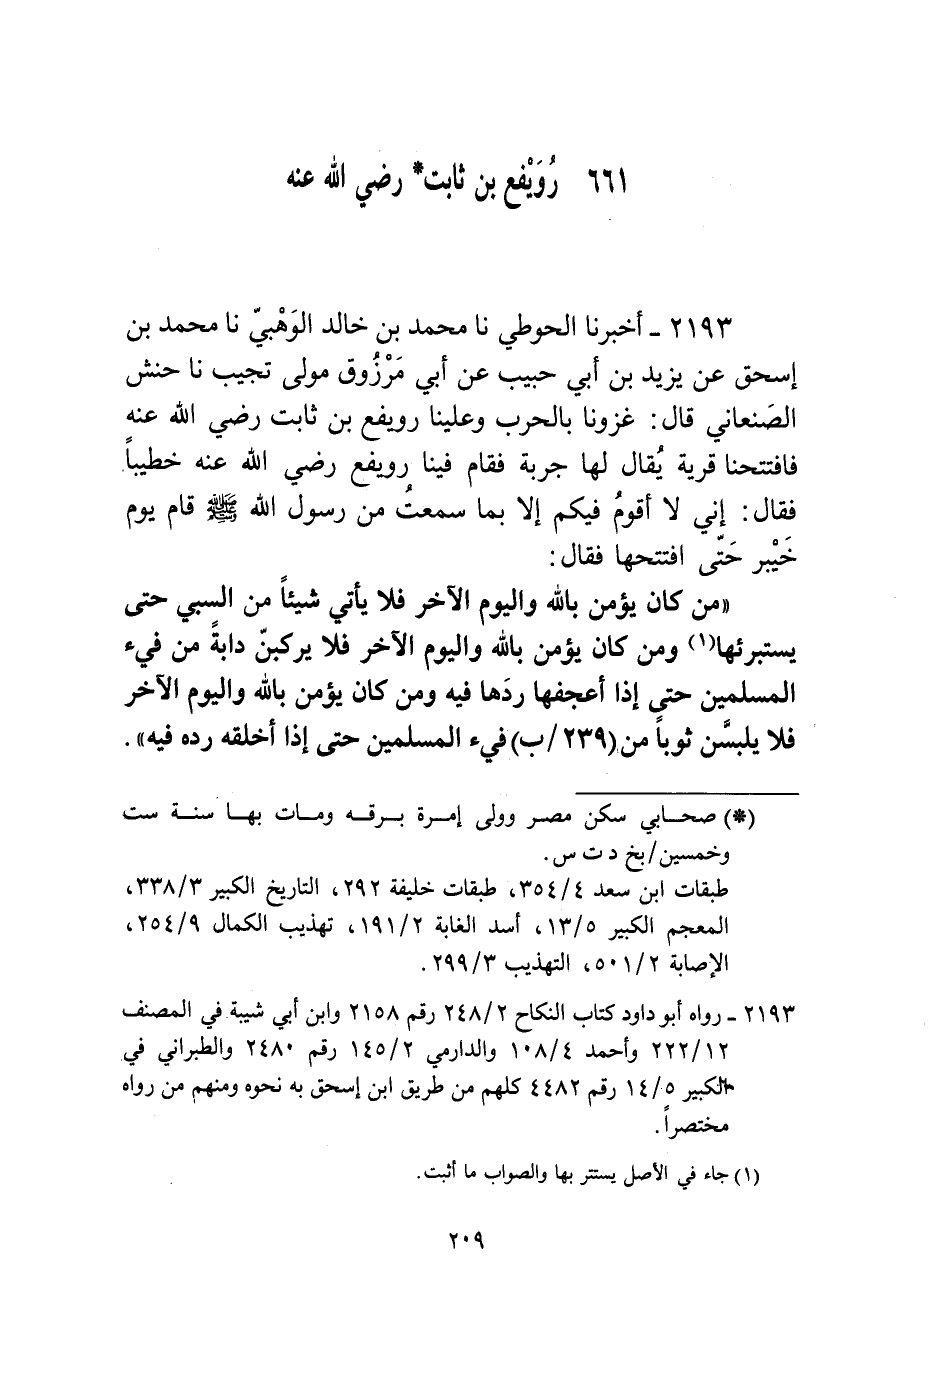 ٦٦١ رُوَيْفع بن ثابت* رضي الله عنه
٢١٩٣ ـ أخبرنا الحوطي نا محمد بن خالد الوَهْبيّ نا محمد بن
إسحق عن يزيد بن أبي حبيب عن أبي مَرْزُوق مولى تجيب نا حنش
الصَنعاني قال: غزونا بالحرب وعلينا رويفع بن ثابت رضي الله عنه
فافتتحنا قرية يُقال لها جربة فقام فينا رويفع رضي الله عنه خطيباً
فقال: إني لا أقومُ فيكم إلا بما سمعتُ من رسول الله ﷺ قام يوم
خَيْبر حَتّى افتتحها فقال:
«من كان يؤمن بالله واليوم الآخر فلا يأتي شيئاً من السبي حتى
يستبرئها(١) ومن كان يؤمن بالله واليوم الآخر فلا يركبنّ دابةً من فيء
المسلمين حتى إذا أعجفها ردَها فيه ومن كان يؤمن بالله واليوم الآخر
فلا يلبسَّن ثوباً من (٢٣٩/ب) فيء المسلمين حتى إذا أخلقه رده فيه».
(*) صحابي سكن مصر وولى إمرة برقه ومات بها سنة ست
وخمسين/بخ د ت س.
طبقات ابن سعد ٣٥٤/٤، طبقات خليفة ٢٩٢، التاريخ الكبير ٣٣٨/٣،
المعجم الكبير ١٣/٥، أسد الغابة ١٩١/٢، تهذيب الكمال ٢٥٤/٩،
الإصابة ٥٠١/٢، التهذيب ٢٩٩/٣.
٢١٩٣ ـ رواه أبو داود كتاب النكاح ٢٤٨/٢ رقم ٢١٥٨ وابن أبي شيبة في المصنف
٢٢٢/١٢ وأحمد ١٠٨/٤ والدارمي ١٤٥/٢ رقم ٢٤٨٠ والطبراني في
الكبير ١٤/٥ رقم ٤٤٨٢ كلهم من طريق ابن إسحق به نحوه ومنهم من رواه
مختصراً.
(١) جاء في الأصل يستتر بها والصواب ما أثبت.
٢٠٩